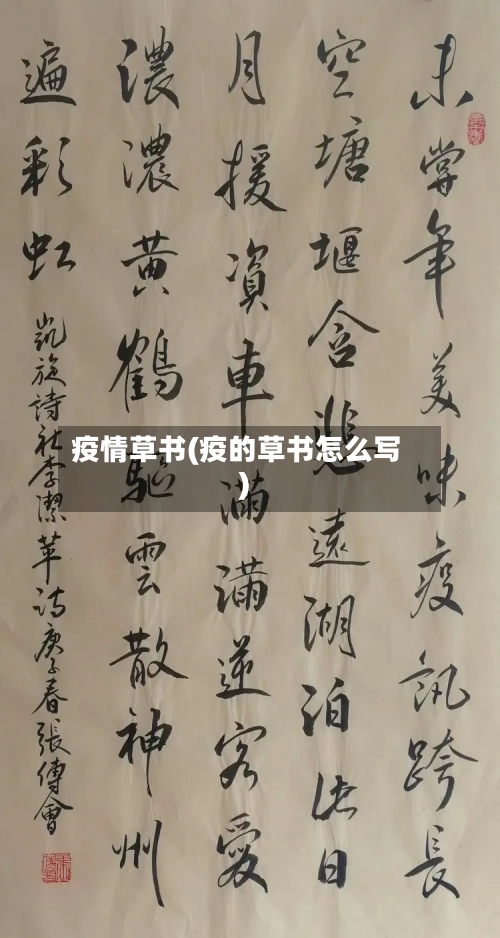 未嘗年美味疫訊跨長
空塘堰含悲遠湖泊日
月援資車滿滿逆客愛
濃濃黃鶴驅雲散神州
遍彩虹
凱旋詩社李潔苹詩庚子春張傳會
疫情草书(疫的草书怎么写
)